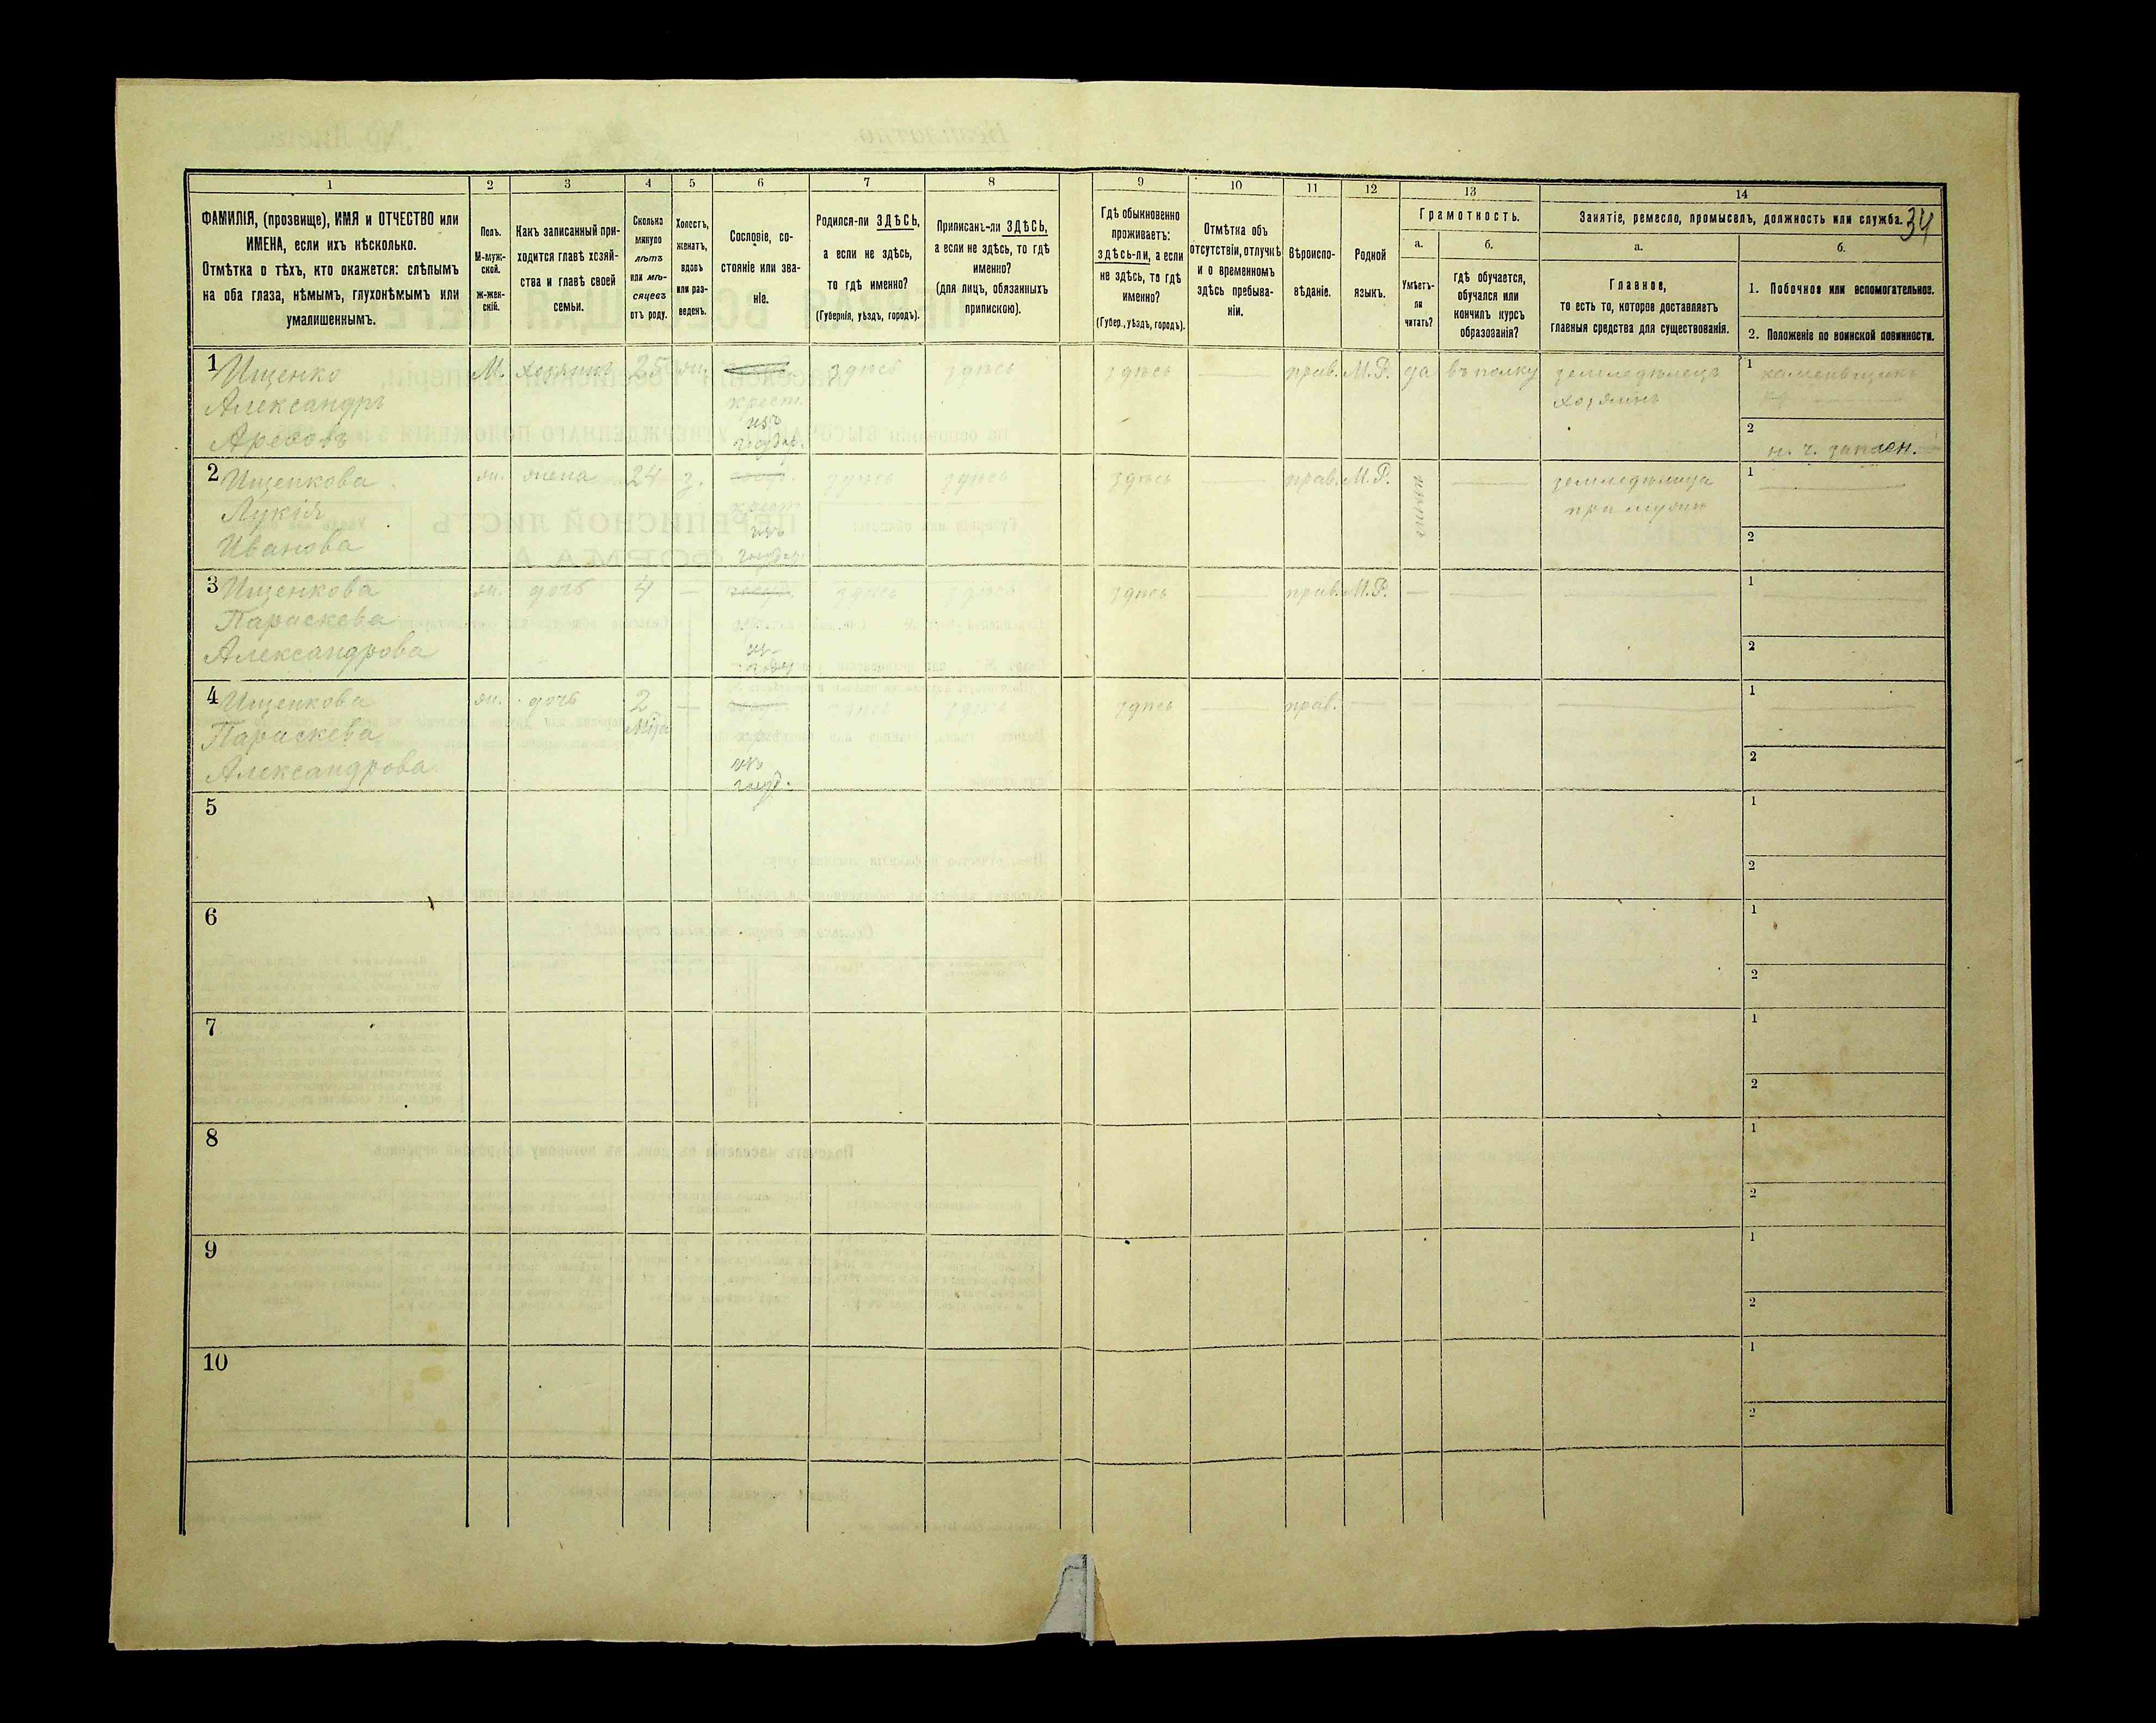 34
1 2 3 4 5 6 7 8 9 10 11 12 13 14
ФАМИЛІЯ, (прозвище), ИМЯ и ОТЧЕСТВО или
ИМЕНА, если ихъ нѣсколько.
Отмѣтка о тѣхъ, кто окажется: слѣпымъ
на оба глаза, нѣмымъ, глухонѣмымъ или
умалишеннымъ.
Полъ.
М-муж-
ской.
Ж-жен-
скій.
Какъ записанный при-
ходится главѣ хозяй-
ства и главѣ своей
семьи.
Сколько
минуло
лѣтъ
или мѣ-
сяцевъ
отъ роду.
Холостъ,
женатъ,
вдовъ
или раз-
веденъ.
Сословіе, со-
стояніе или зва-
ніе.
Родился-ли ЗДѢСЬ,
а если не здѣсь,
то гдѣ именно?
(Губернія, уѣздъ, городъ).
Приписанъ-ли ЗДѢСЬ,
а если не здѣсь, то гдѣ
именно?
(для лицъ, обязанныхъ
припискою).
Гдѣ обыкновенно
проживаетъ:
здѣсь-ли, а если
не здѣсь, то гдѣ
именно?
(Губер., уѣздъ, городъ).
Отмѣтка объ
отсутствіи, отлучкѣ
и о временномъ
здѣсь пребыва-
ніи.
Вѣроиспо-
вѣданіе.
Родной
языкъ.
Грамотность.
а.
Умѣетъ-
ли
читать?
б.
гдѣ обучается,
обучался или
кончилъ курсъ
образованія?
Занятіе, ремесло, промыселъ, должность или служба.
а.
Главное,
то есть то, которое доставляетъ
главныя средства для существованія.
б.
1. Побочное или вспомогательное.
2. Положеніе по воинской повинности.
1 Ищенко М. хозяинъ 25 жн. здѣсь здѣсь здѣсь — прав. М.Р. да въ полку земледѣлецъ 1
Александръ крест. хозяинъ
изъ
государ. 2 н. ч. запасн.
2 Ищенкова ж. жена 24 з. здѣсь здѣсь здѣсь — прав. М.Р. — земледѣлица 1 —
Лукія крест. при мужѣ
Иванова изъ
государ. 2
3 Ищенкова ж. дочь 4 — здѣсь здѣсь здѣсь — прав. М.Р. — — — 1 —
Параскева
Александрова 2
4 Ищенкова ж. дочь 2 — здѣсь здѣсь здѣсь — прав. — — — — 1 —
Параскева
Александрова изъ
госуд. 2
5 1
2
6 1
2
7 1
2
8 1
2
9 1
2
10 1
2